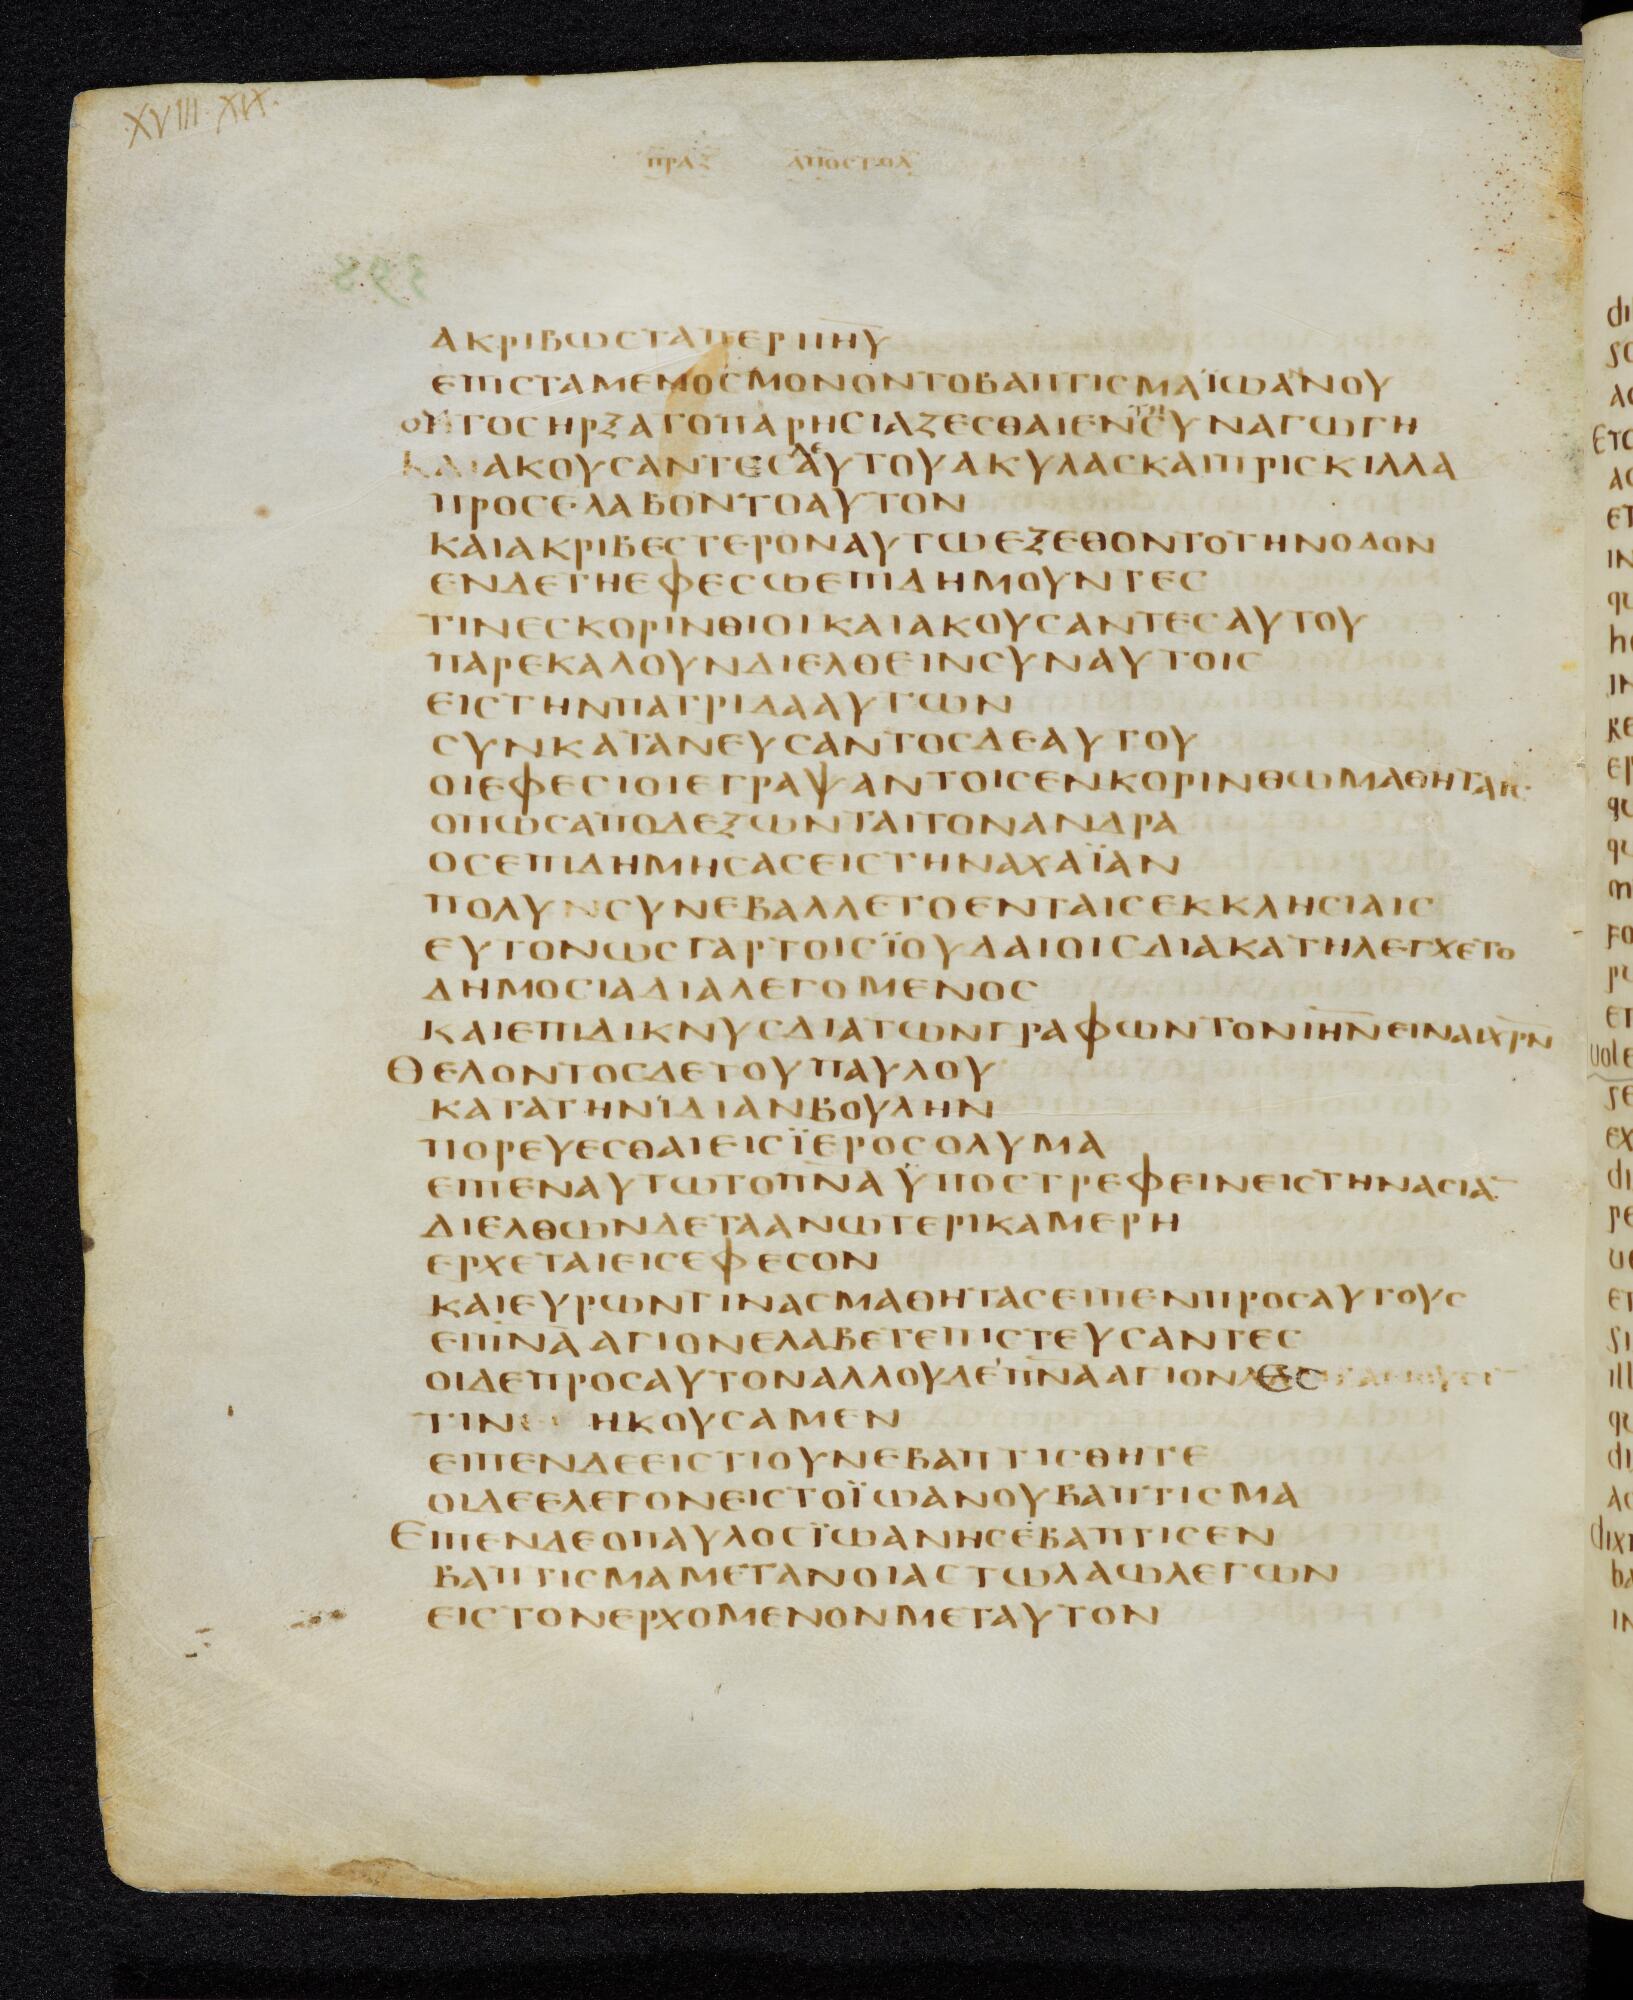 XVIII XIX
ΠΡΑΞ ΑΠΟΣΤΟΛ
ΑΚΡΙΒΩΣΤΑΠΕΡΙΙΗΥ
ΕΠΙΣΤΑΜΕΝΟΣΜΟΝΟΝΤΟΒΑΠΤΙΣΜΑΪΩΑΝΟΥ
ΟΥΤΟΣΗΡΞΑΤΟΠΑΡΗΣΙΑΖΕΣΘΑΙΕΝΤΗΣΥΝΑΓΩΓΗ
ΚΑΙΑΚΟΥΣΑΝΤΕΣΑΥΤΟΥΑΚΥΛΑΣΚΑΙΠΡΙΣΚΙΛΛΑ
ΠΡΟΣΕΛΑΒΟΝΤΟΑΥΤΟΝ
ΚΑΙΑΚΡΙΒΕΣΤΕΡΟΝΑΥΤΩΕΞΕΘΟΝΤΟΤΗΝΟΔΟΝ
ΕΝΔΕΤΗΕΦΕΣΩΕΠΙΔΗΜΟΥΝΤΕΣ
ΤΙΝΕΣΚΟΡΙΝΘΙΟΙΚΑΙΑΚΟΥΣΑΝΤΕΣΑΥΤΟΥ
ΠΑΡΕΚΑΛΟΥΝΔΙΕΛΘΕΙΝΣΥΝΑΥΤΟΙΣ
ΕΙΣΤΗΝΠΑΤΡΙΔΑΑΥΤΩΝ
ΣΥΝΚΑΤΑΝΕΥΣΑΝΤΟΣΔΕΑΥΤΟΥ
ΟΙΕΦΕΣΙΟΙΕΓΡΑΨΑΝΤΟΙΣΕΝΚΟΡΙΝΘΩΜΑΘΗΤΑΙΣ
ΟΠΩΣΑΠΟΔΕΞΩΝΤΑΙΤΟΝΑΝΔΡΑ
ΟΣΕΠΙΔΗΜΗΣΑΣΕΙΣΤΗΝΑΧΑΪΑΝ
ΠΟΛΥΝΣΥΝΕΒΑΛΛΕΤΟΕΝΤΑΙΣΕΚΚΛΗΣΙΑΙΣ
ΕΥΤΟΝΩΣΓΑΡΤΟΙΣΪΟΥΔΑΙΟΙΣΔΙΑΚΑΤΗΛΕΓΧΕΤΟ
ΔΗΜΟΣΙΑΔΙΑΛΕΓΟΜΕΝΟΣ
ΚΑΙΕΠΙΔΙΚΝΥΣΔΙΑΤΩΝΓΡΑΦΩΝΤΟΝΙΗΝΕΙΝΑΙΧΡΝ
ΘΕΛΟΝΤΟΣΔΕΤΟΥΠΑΥΛΟΥ
ΚΑΤΑΤΗΝΪΔΙΑΝΒΟΥΛΗΝ
ΠΟΡΕΥΕΣΘΑΙΕΙΣΪΕΡΟΣΟΛΥΜΑ
ΕΙΠΕΝΑΥΤΩΤΟΠΝΑΫΠΟΣΤΡΕΦΕΙΝΕΙΣΤΗΝΑΣΙΑ̅
ΔΙΕΛΘΩΝΔΕΤΑΑΝΩΤΕΡΙΚΑΜΕΡΗ
ΕΡΧΕΤΑΙΕΙΣΕΦΕΣΟΝ
ΚΑΙΕΥΡΩΝΤΙΝΑΣΜΑΘΗΤΑΣΕΙΠΕΝΠΡΟΣΑΥΤΟΥΣ
ΕΙΠΝΑΑΓΙΟΝΕΛΑΒΕΤΕΠΙΣΤΕΥΣΑΝΤΕΣ
ΟΙΔΕΠΡΟΣΑΥΤΟΝΑΛΛΟΥΔΕΠΝΑΑΓΙΟΝ
ΤΙΝΕΣ ΗΚΟΥΣΑΜΕΝ
ΕΙΠΕΝΔΕΕΙΣΤΙΟΥΝΕΒΑΠΤΙΣΘΗΤΕ
ΟΙΔΕΕΛΕΓΟΝΕΙΣΤΟΪΩΑΝΟΥΒΑΠΤΙΣΜΑ
ΕΙΠΕΝΔΕΟΠΑΥΛΟΣΪΩΑΝΗΣΕΒΑΠΤΙΣΕΝ
ΒΑΠΤΙΣΜΑΜΕΤΑΝΟΙΑΣΤΩΛΑΩΛΕΓΩΝ
ΕΙΣΤΟΝΕΡΧΟΜΕΝΟΝΜΕΤΑΥΤΟΝ